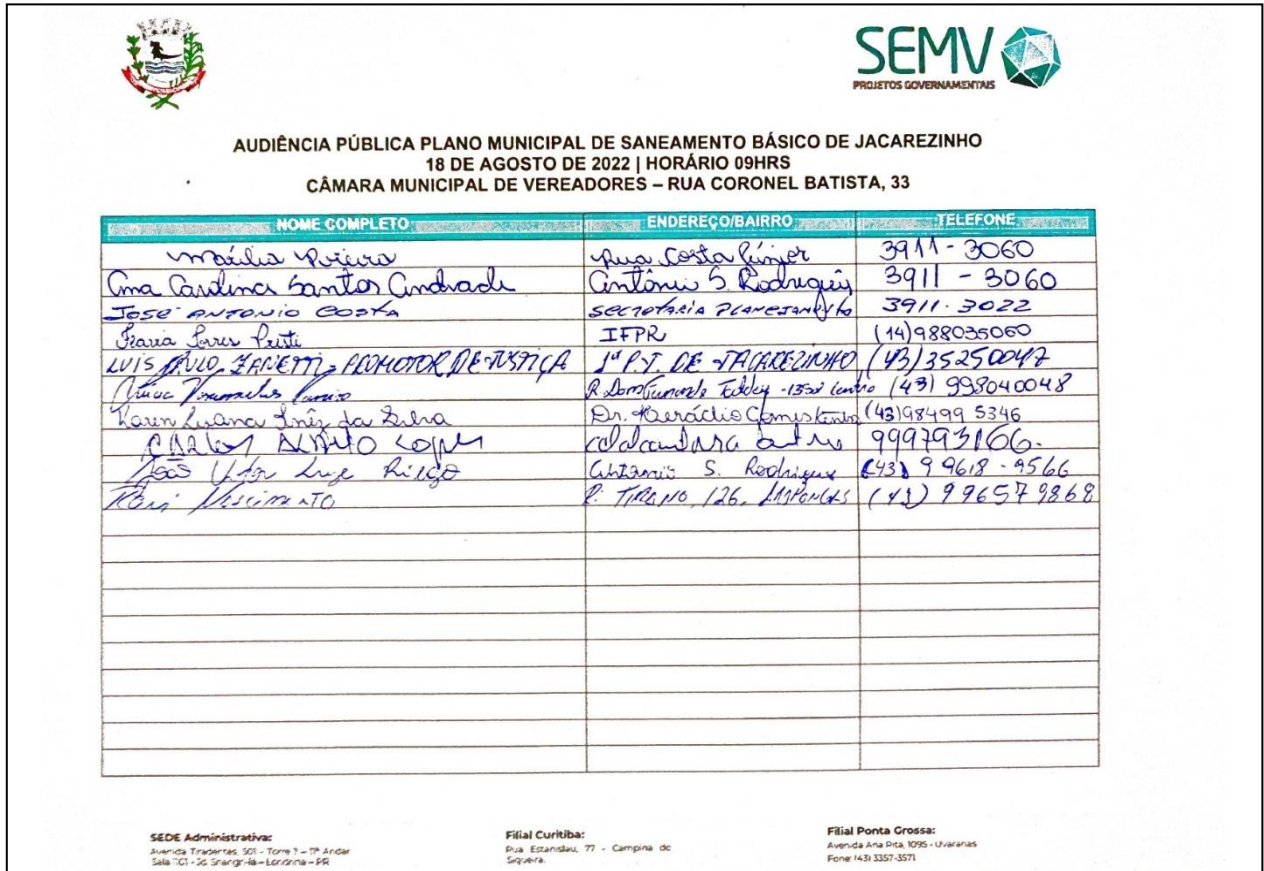 SEMV
PROJETOS GOVERNAMENTAIS
AUDIÊNCIA PÚBLICA PLANO MUNICIPAL DE SANEAMENTO BÁSICO DE JACAREZINHO
18 DE AGOSTO DE 2022 | HORÁRIO 09HRS
CÂMARA MUNICIPAL DE VEREADORES – RUA CORONEL BATISTA, 33
NOME COMPLETO ENDEREÇO/BAIRRO TELEFONE
Marília Rua Costa Júnior 3911-3060
Ana Carolina Santos Andrade Antônio S. Rodrigues 3911 - 3060
JOSÉ ANTONIO COSTA SECRETARIA PLANEJAMENTO 3911.3022
Flavia Torres IFPR (14)988035060
LUIS PAULO ZANETTI - PROMOTOR DE JUSTIÇA 1ª P.J. DE JACAREZINHO (43)35250047
R. Dom Fernando 1350 Centro (43) 998040048
Karen Luana Inêz da Silva Dr. Heráclio Gomes (43)98499 5346
CARLOS ALBERTO LOPES 999793166.
João Luiz Antonio S. Rodrigues (43) 99618-9566
NASCIMENTO R. 126, (43) 996579868
SEDE Administrativa:
Avenida Tiradentes, 501 - Torre – 11º Andar
Sala 1101 - Jd. Shangri-lá – Londrina – PR
Filial Curitiba:
Rua Estanislau, 77 - Campina do
Siqueira.
Filial Ponta Grossa:
Avenida Ana Rita, 1095 - Uvaranas
Fone: (43) 3357-3571